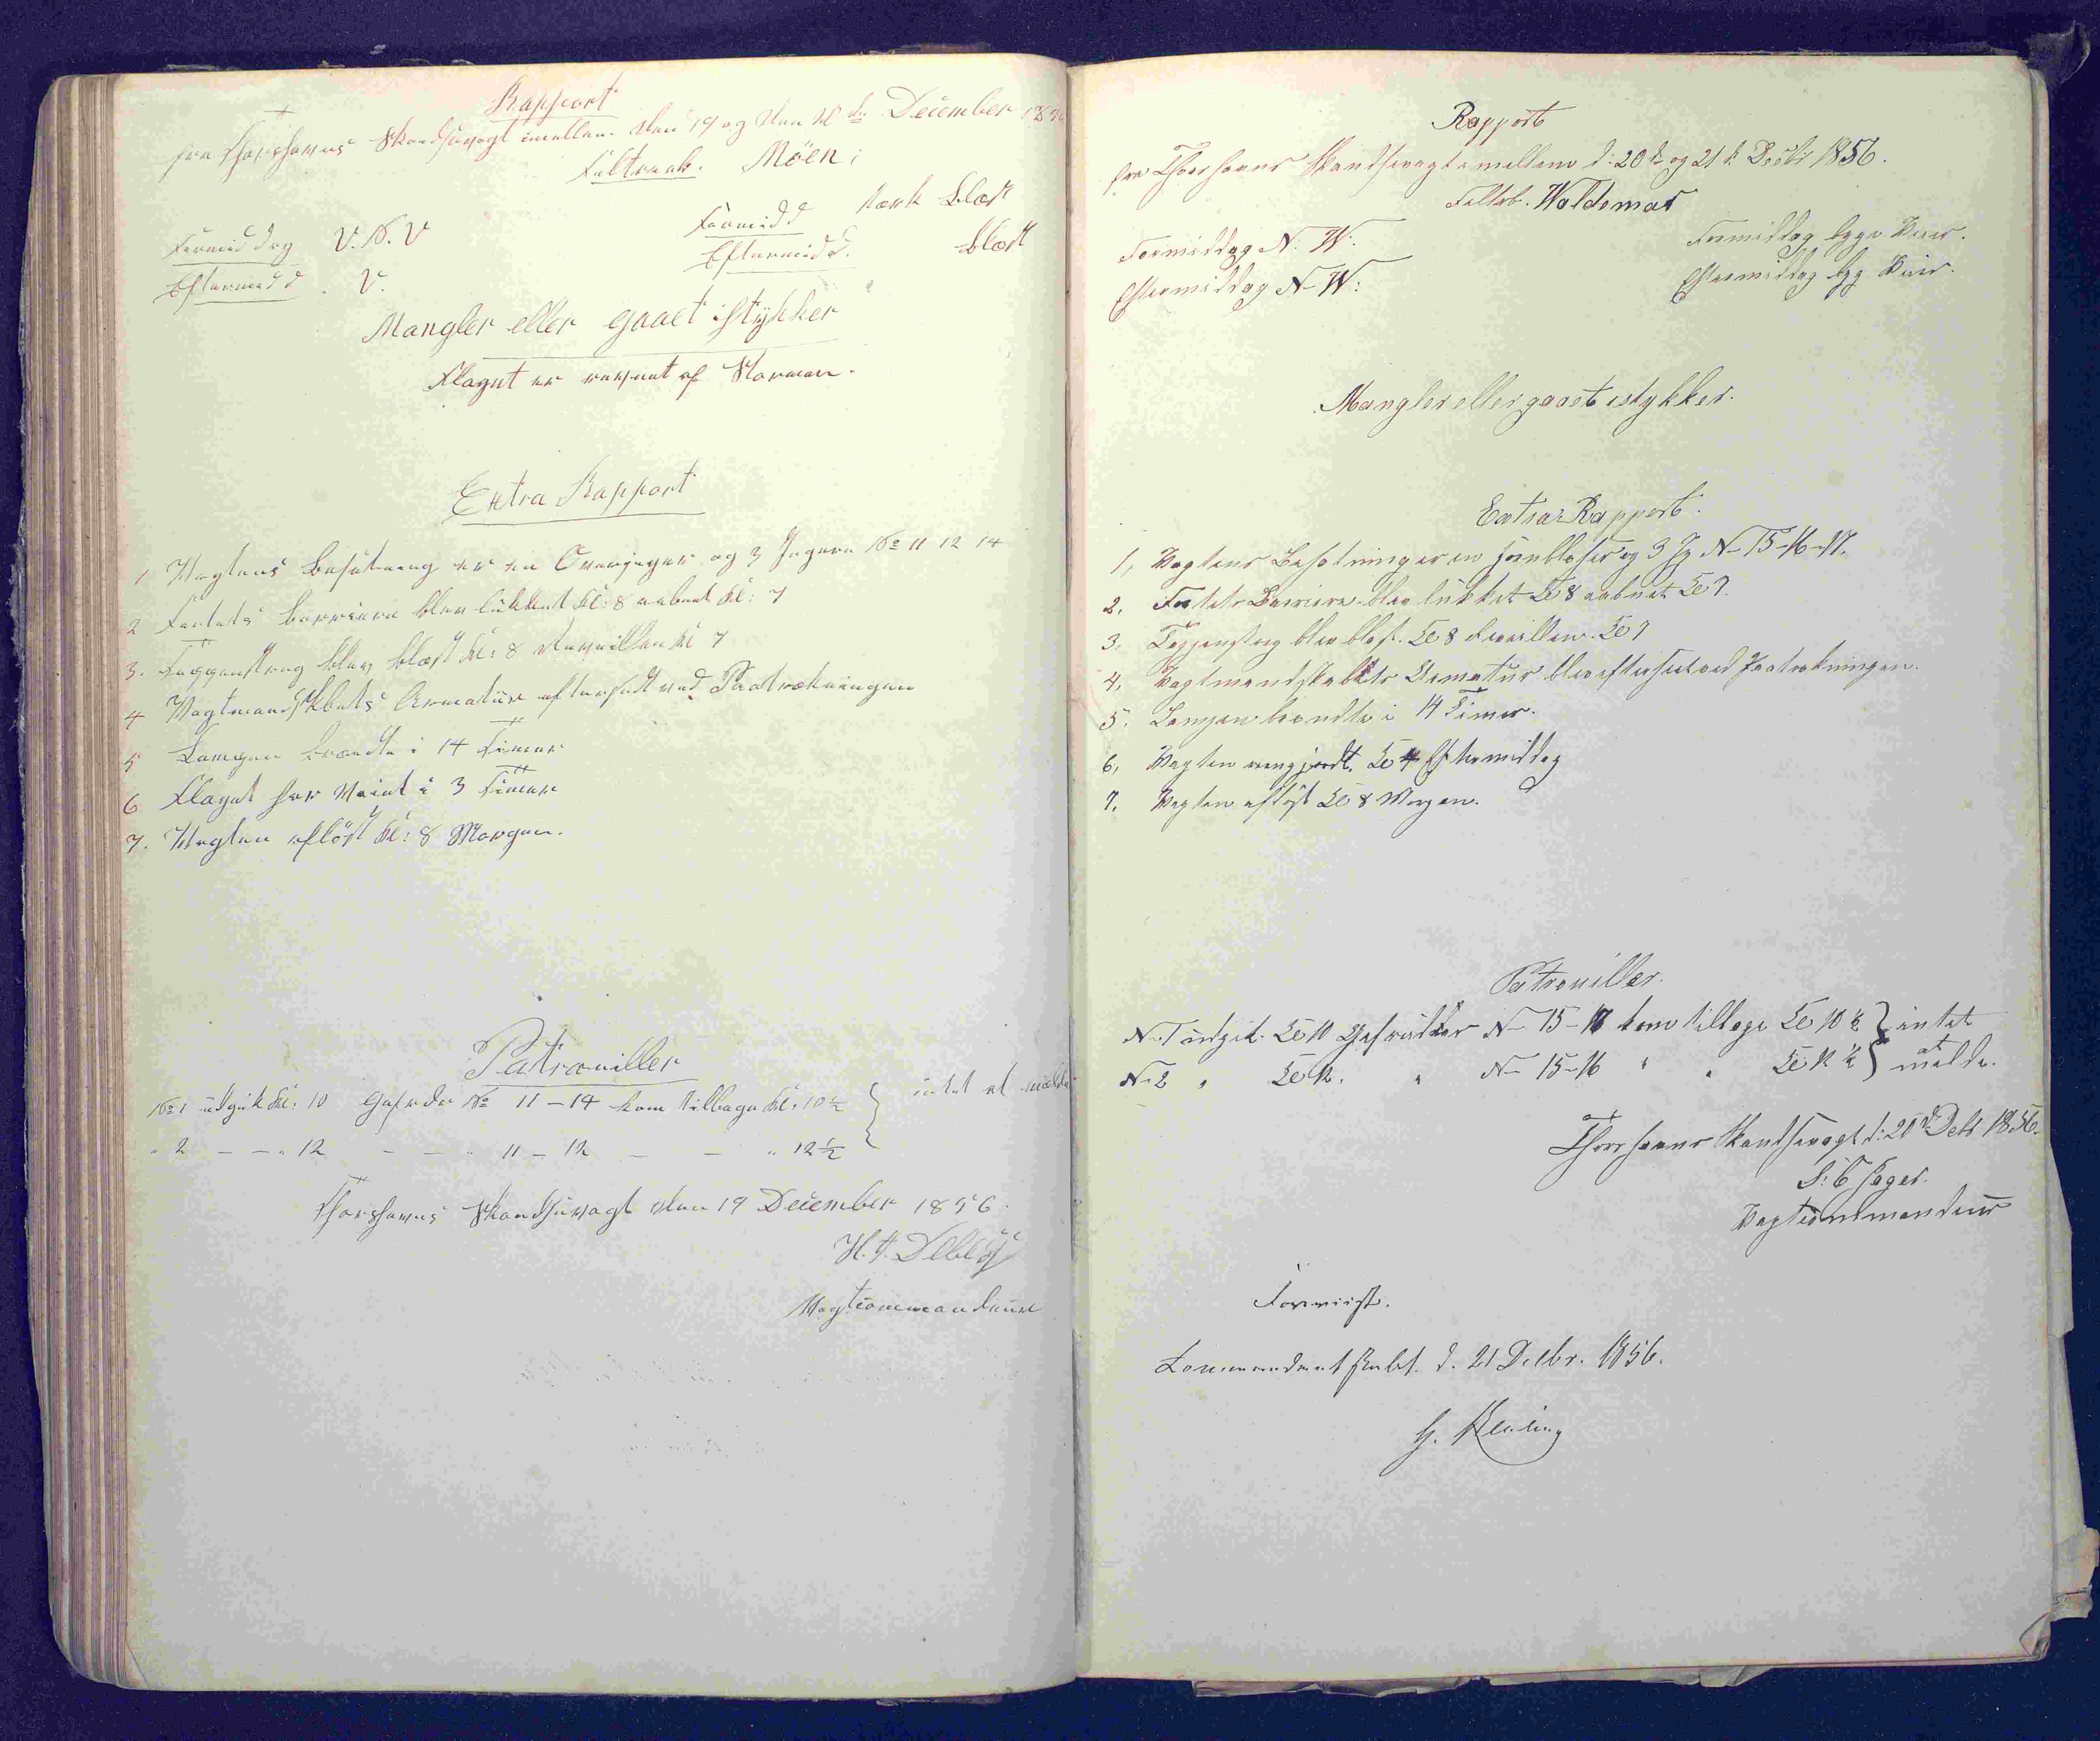 Rapport
fra Thorshavns Skandsevagt imellem den 19 og den 20de December 1856
Feltraab. Möen
Formiddag V.N.V Formidd stærk Blæst
Eftermidd V. Eftermidd. Blæst
Mangler eller gaaet istÿkker
Flaget er revnet af Stormen.
Extra Rapport
1 Vagtens Besætning er en Overjæger og 3 Jægere No 11 12 14
2 Fortets Barriere blev lukket Kl: 8 aabnet Kl: 7
3. Tappenstreg blev blæst Kl: 8 Reveillen Kl 7
4 Vagtmandskabets Armatur efterseet ved Paatrækningen
5 Lampen brændte i 14 Timer
6 Flaget har vaiet i 3 Timer
7. Vagten aflöst Kl: 8 Morgen.
Patrouiller
No 1 udgik Kl: 10 Gefreder No 11 - 14 kom tilbage Kl: 10½ } intet at melde
" 2 - - " 12 - - " 11 - 12 - - " 12½
Thorshavns Skandsevagt den 19 December 1856.
H. J. Debes
Vagtcommandeur
Rapport
fra Thorshavns Skandsevagt imellem d: 20de og 21de Decbr 1856.
Feltrb. Waldemar
Formiddag N: W: Formiddag byge Veir.
Eftermiddag N-W: Eftermiddag byg Veir.
Mangler eller gaaet istykker.
Extra Rapport.
1, Vagtens Besætning er en Hornblæser og 3 Jg N- 15-16-17.
2. Fortets Barriere blev lukket Kl 8 aabnet Kl 7.
3, Tappenstreg blev blæst. Kl 8 Reveillen. Kl 7
4, Vagtmandskabets Armatur blev efterseet ved Paatrækningen.
5. Lampen brændte i 14 Timer.
6, Vagten rengjordt. Kl 4 Eftermiddag
7. Vagten aflöst Kl 8 Morgen.
Patrouiller.
N-1 udgik. Kl 10 Gefreider N- 15-17 kom tilbage Kl 10½ } intet
N-2 " Kl 12. " N- 15-16 " " Kl 12½ } at melde.
Thorshavns Skandsevagt d: 20de Debr 1856.
Vagtcommandeur
Forviist.
Commandantskabet. d. 21 Decbr. 1856.